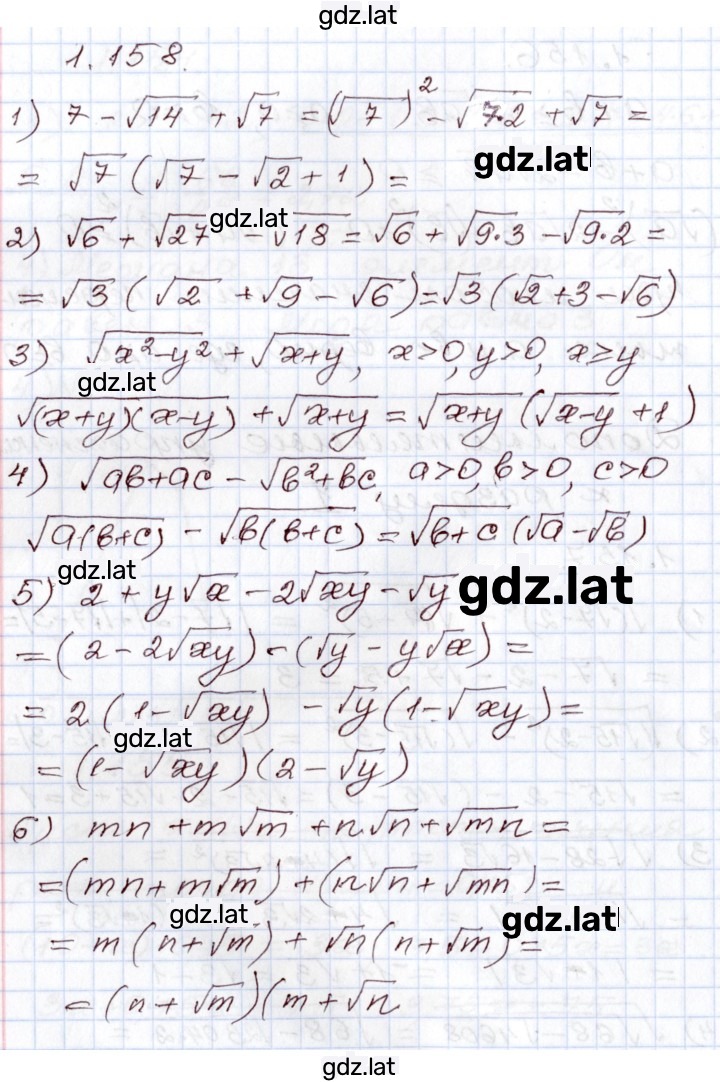 gdz.lat
1.158.
1) 7 - √14 + √7 = (√7)² - √7·2 + √7 =
gdz.lat
= √7 (√7 - √2 + 1) =
gdz.lat
2) √6 + √27 - √18 = √6 + √9·3 - √9·2 =
= √3 (√2 + √9 - √6) = √3 (√2 + 3 - √6)
3) √x²-y² + √x+y, x>0, y>0, x≥y
gdz.lat
√(x+y)(x-y) + √x+y = √x+y (√x-y + 1)
4) √ab+ac - √b²+bc, a>0, b>0, c>0
√a(b+c) - √b(b+c) = √b+c (√a - √b)
gdz.lat
5) 2 + y√x - 2√xy - √y
gdz.lat
= (2 - 2√xy) - (√y - y√x) =
= 2 (1 - √xy) - √y (1 - √xy) =
gdz.lat
= (1 - √xy)(2 - √y)
6) mn + m√m + n√n + √mn =
= (mn + m√m) + (n√n + √mn) =
gdz.lat
gdz.lat
= m (n + √m) + √n (n + √m) =
= (n + √m)(m + √n
gdz.lat